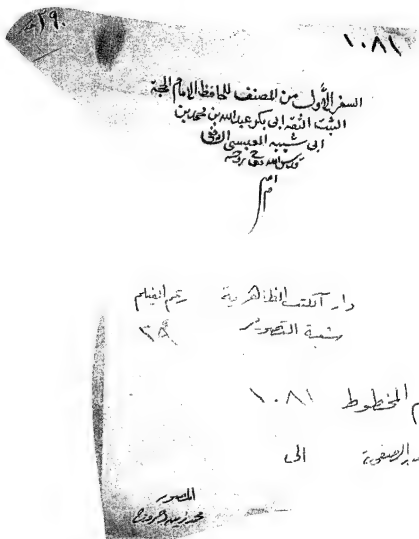 ١٠٨١
السفر الأول من المصنف للحافظ الإمام الحجة
الثبت الثقة ابى بكر عبد الله بن محمد بن
ابى شيبة العبسى الكوفى
قدس الله تعالى روحه
دار الكتب الظاهرية رقم الفيلم
شعبة التصوير
م المخطوط ١٠٨١
الى
المصور